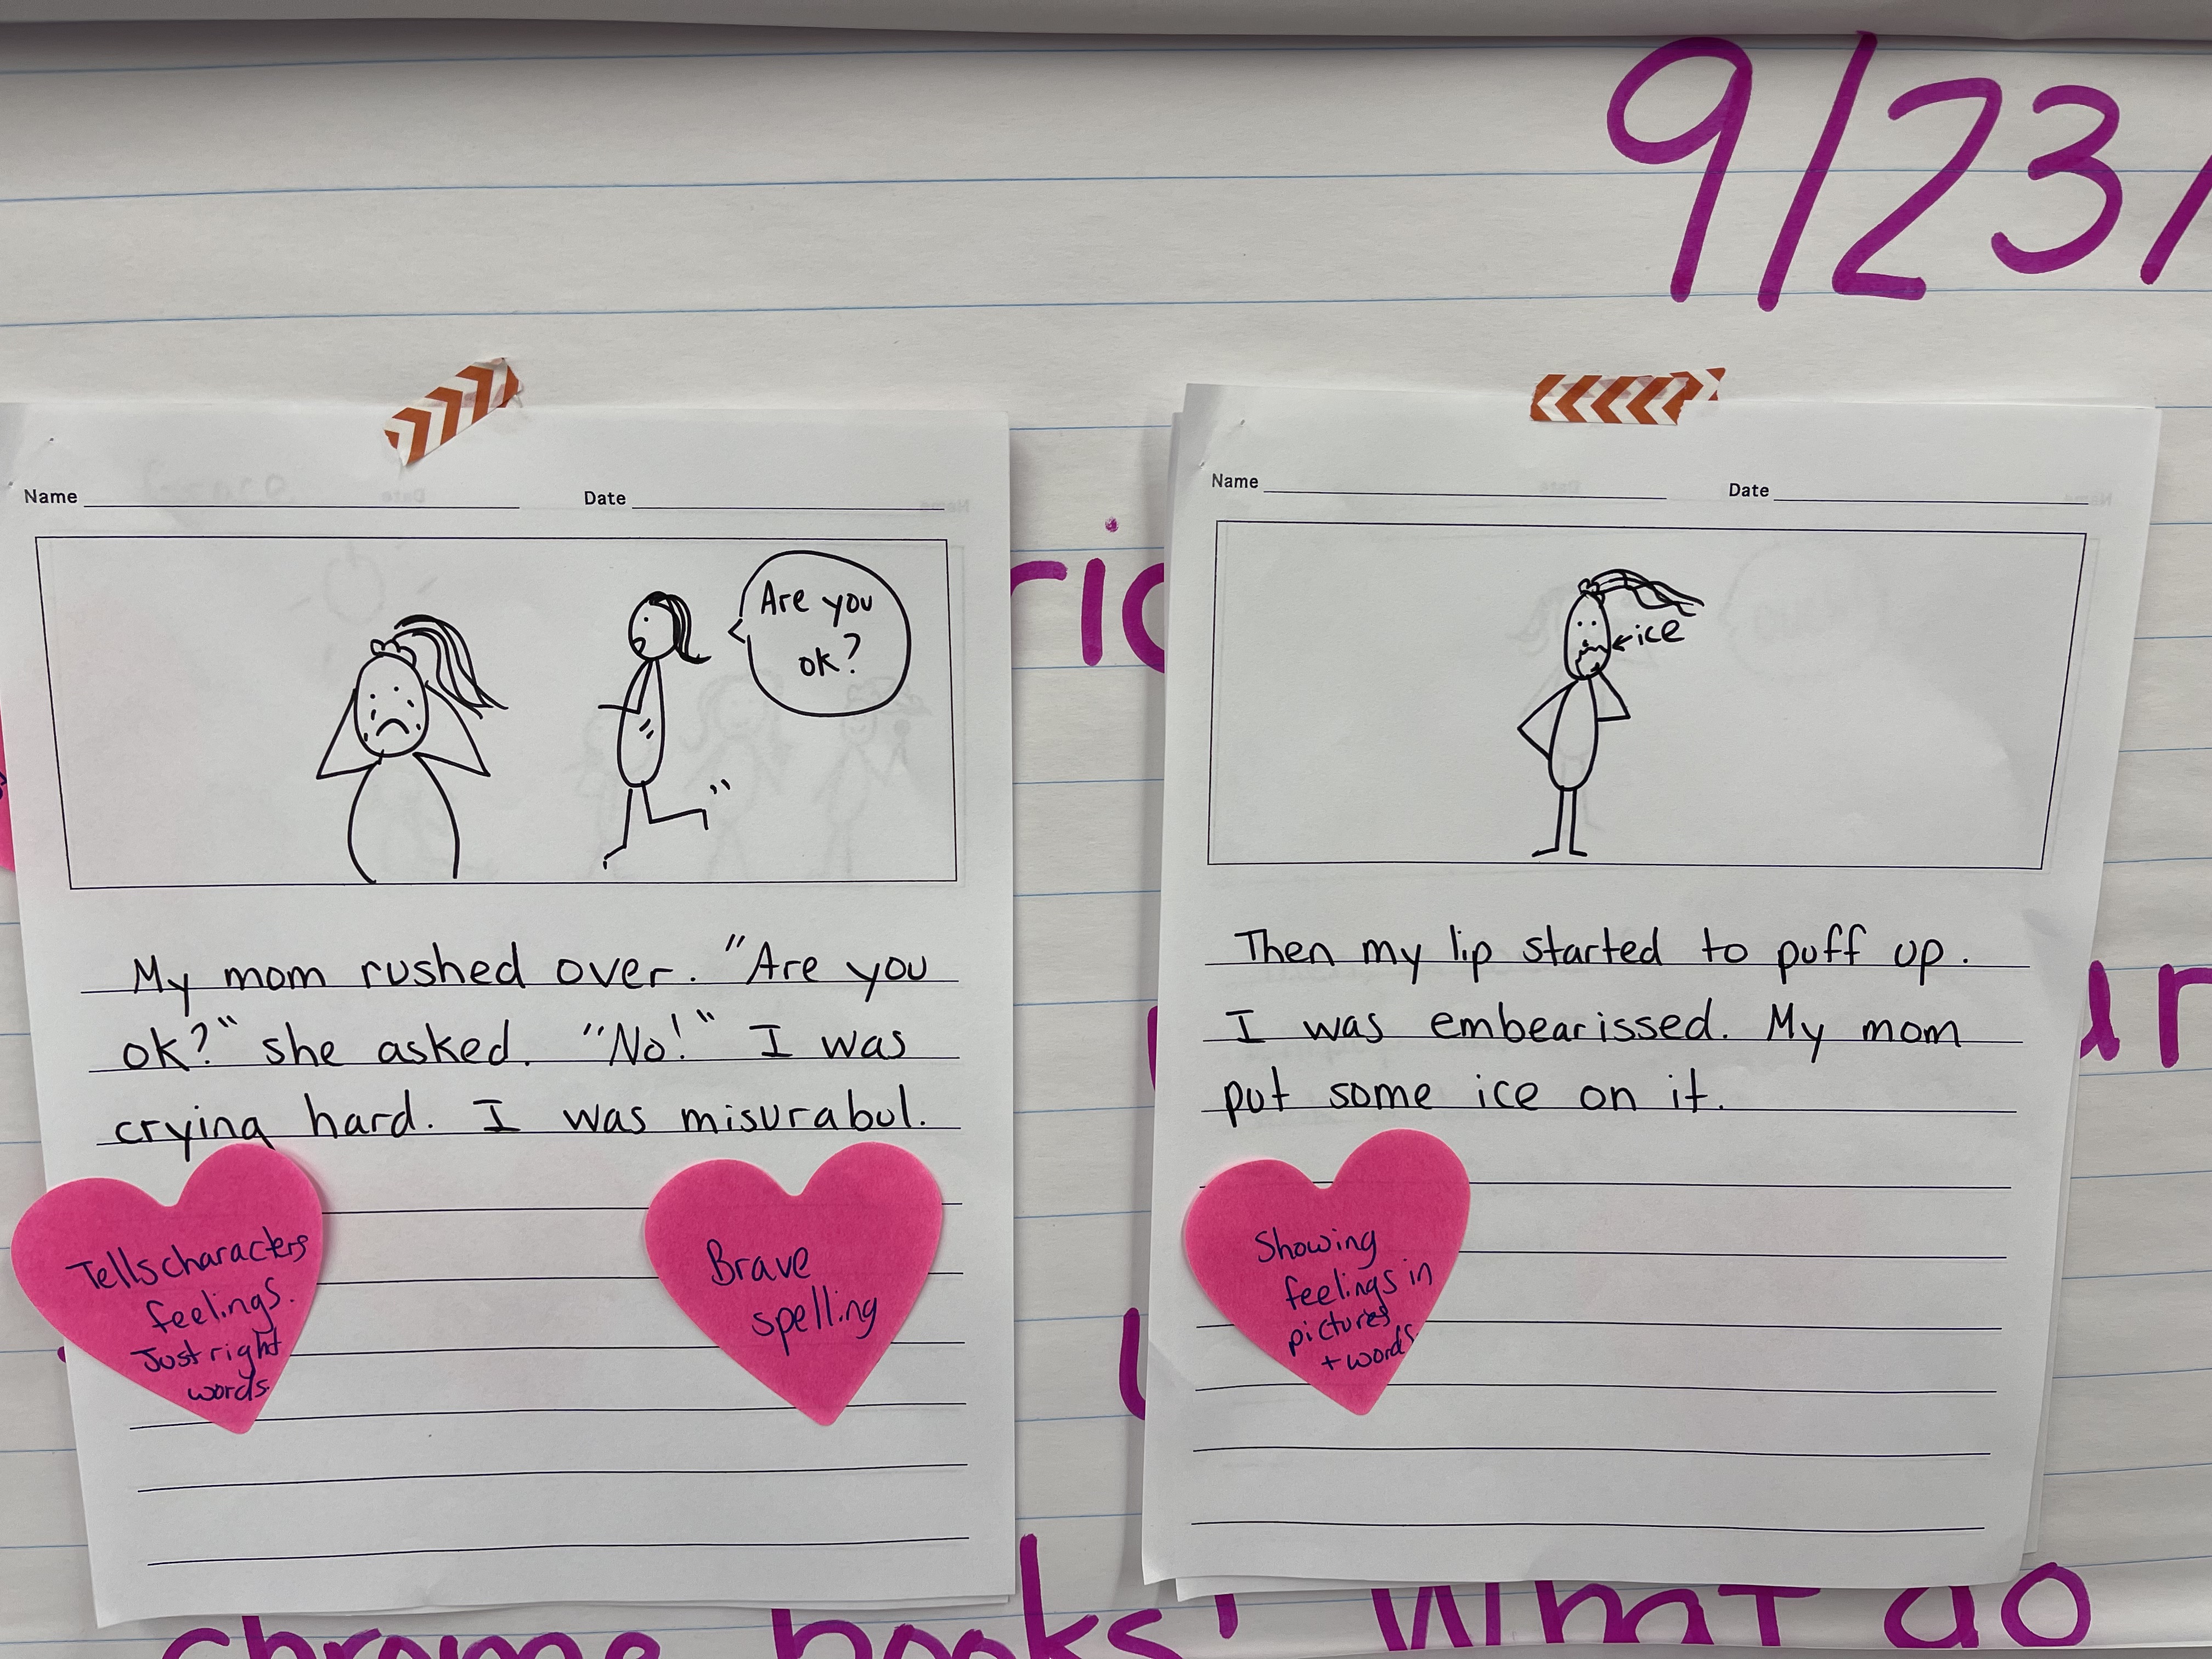 9/23/
Name Date
Are you
ok?
My mom rushed over. "Are you
ok?" she asked. "No!" I was
crying hard. I was misurabul.
Tells characters
feelings.
Just right
words.
Brave
spelling
Name Date
ice
Then my lip started to puff up.
I was embearissed. My mom
put some ice on it.
Showing
feelings in
pictures
+ words
chrome books! What do